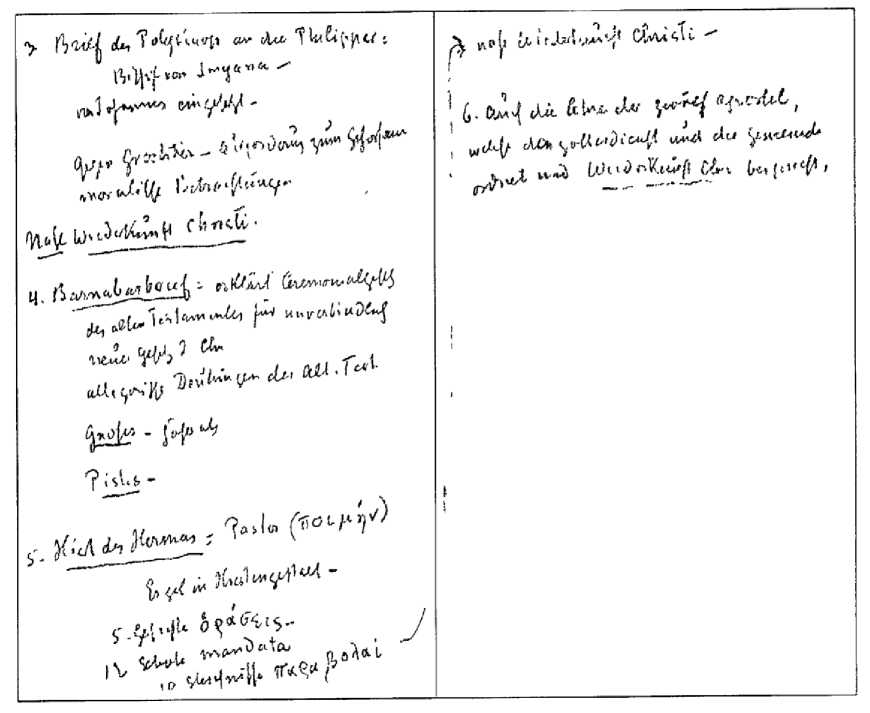 3 Brief des Polykarp an die Philipper:
Bischof von Smyrna –
von Johannes eingesetzt –
gegen Irrlehrer – Aufforderung zum Gehorsam
moralische Betrachtungen
Nahe Wiederkunft Christi.
4. Barnabasbrief = erklärt Ceremonialgesetz
des alten Testamentes für unverbindlich
neues Gesetz Chr
allegorische Deutungen des Alt. Test.
Gnosis – höher als
Pistis –
5. Hirt des Hermas = Pastor (ποιμήν)
Engel in Hirtengestalt –
5 Gesichte ὁράσεις –
12 Gebote mandata
10 Gleichnisse παραβολαί
nahe Wiederkunft Christi –
6. Auch die Lehre der zwölf Apostel,
welche den Gottesdienst und die Gemeinde
ordnet und Wiederkunft Chr bespricht,